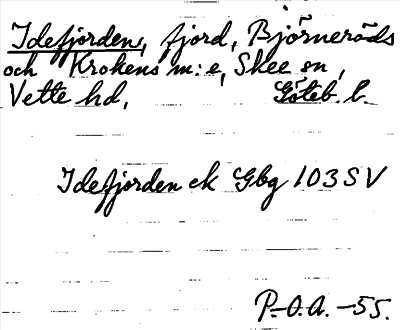 Idefjorden, fjord, Björneröds
och Krokens m:e, Skee sn,
Vette hd, Göteb. l.
Idefjorden ek Gbg 103 SV
P.-O.A. -55.